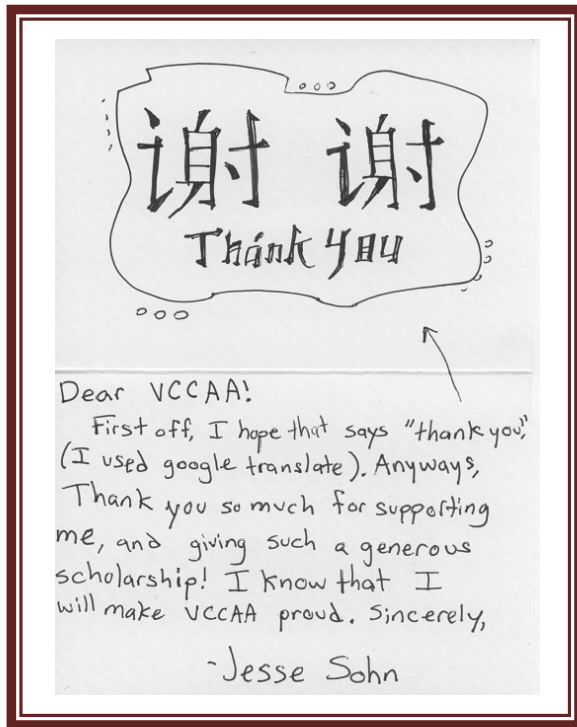 谢 谢
Thank you
Dear VCCAA!
First off, I hope that says "thank you",
(I used google translate). Anyways,
Thank you so much for supporting
me, and giving such a generous
scholarship! I know that I
will make VCCAA proud. Sincerely,
-Jesse Sohn